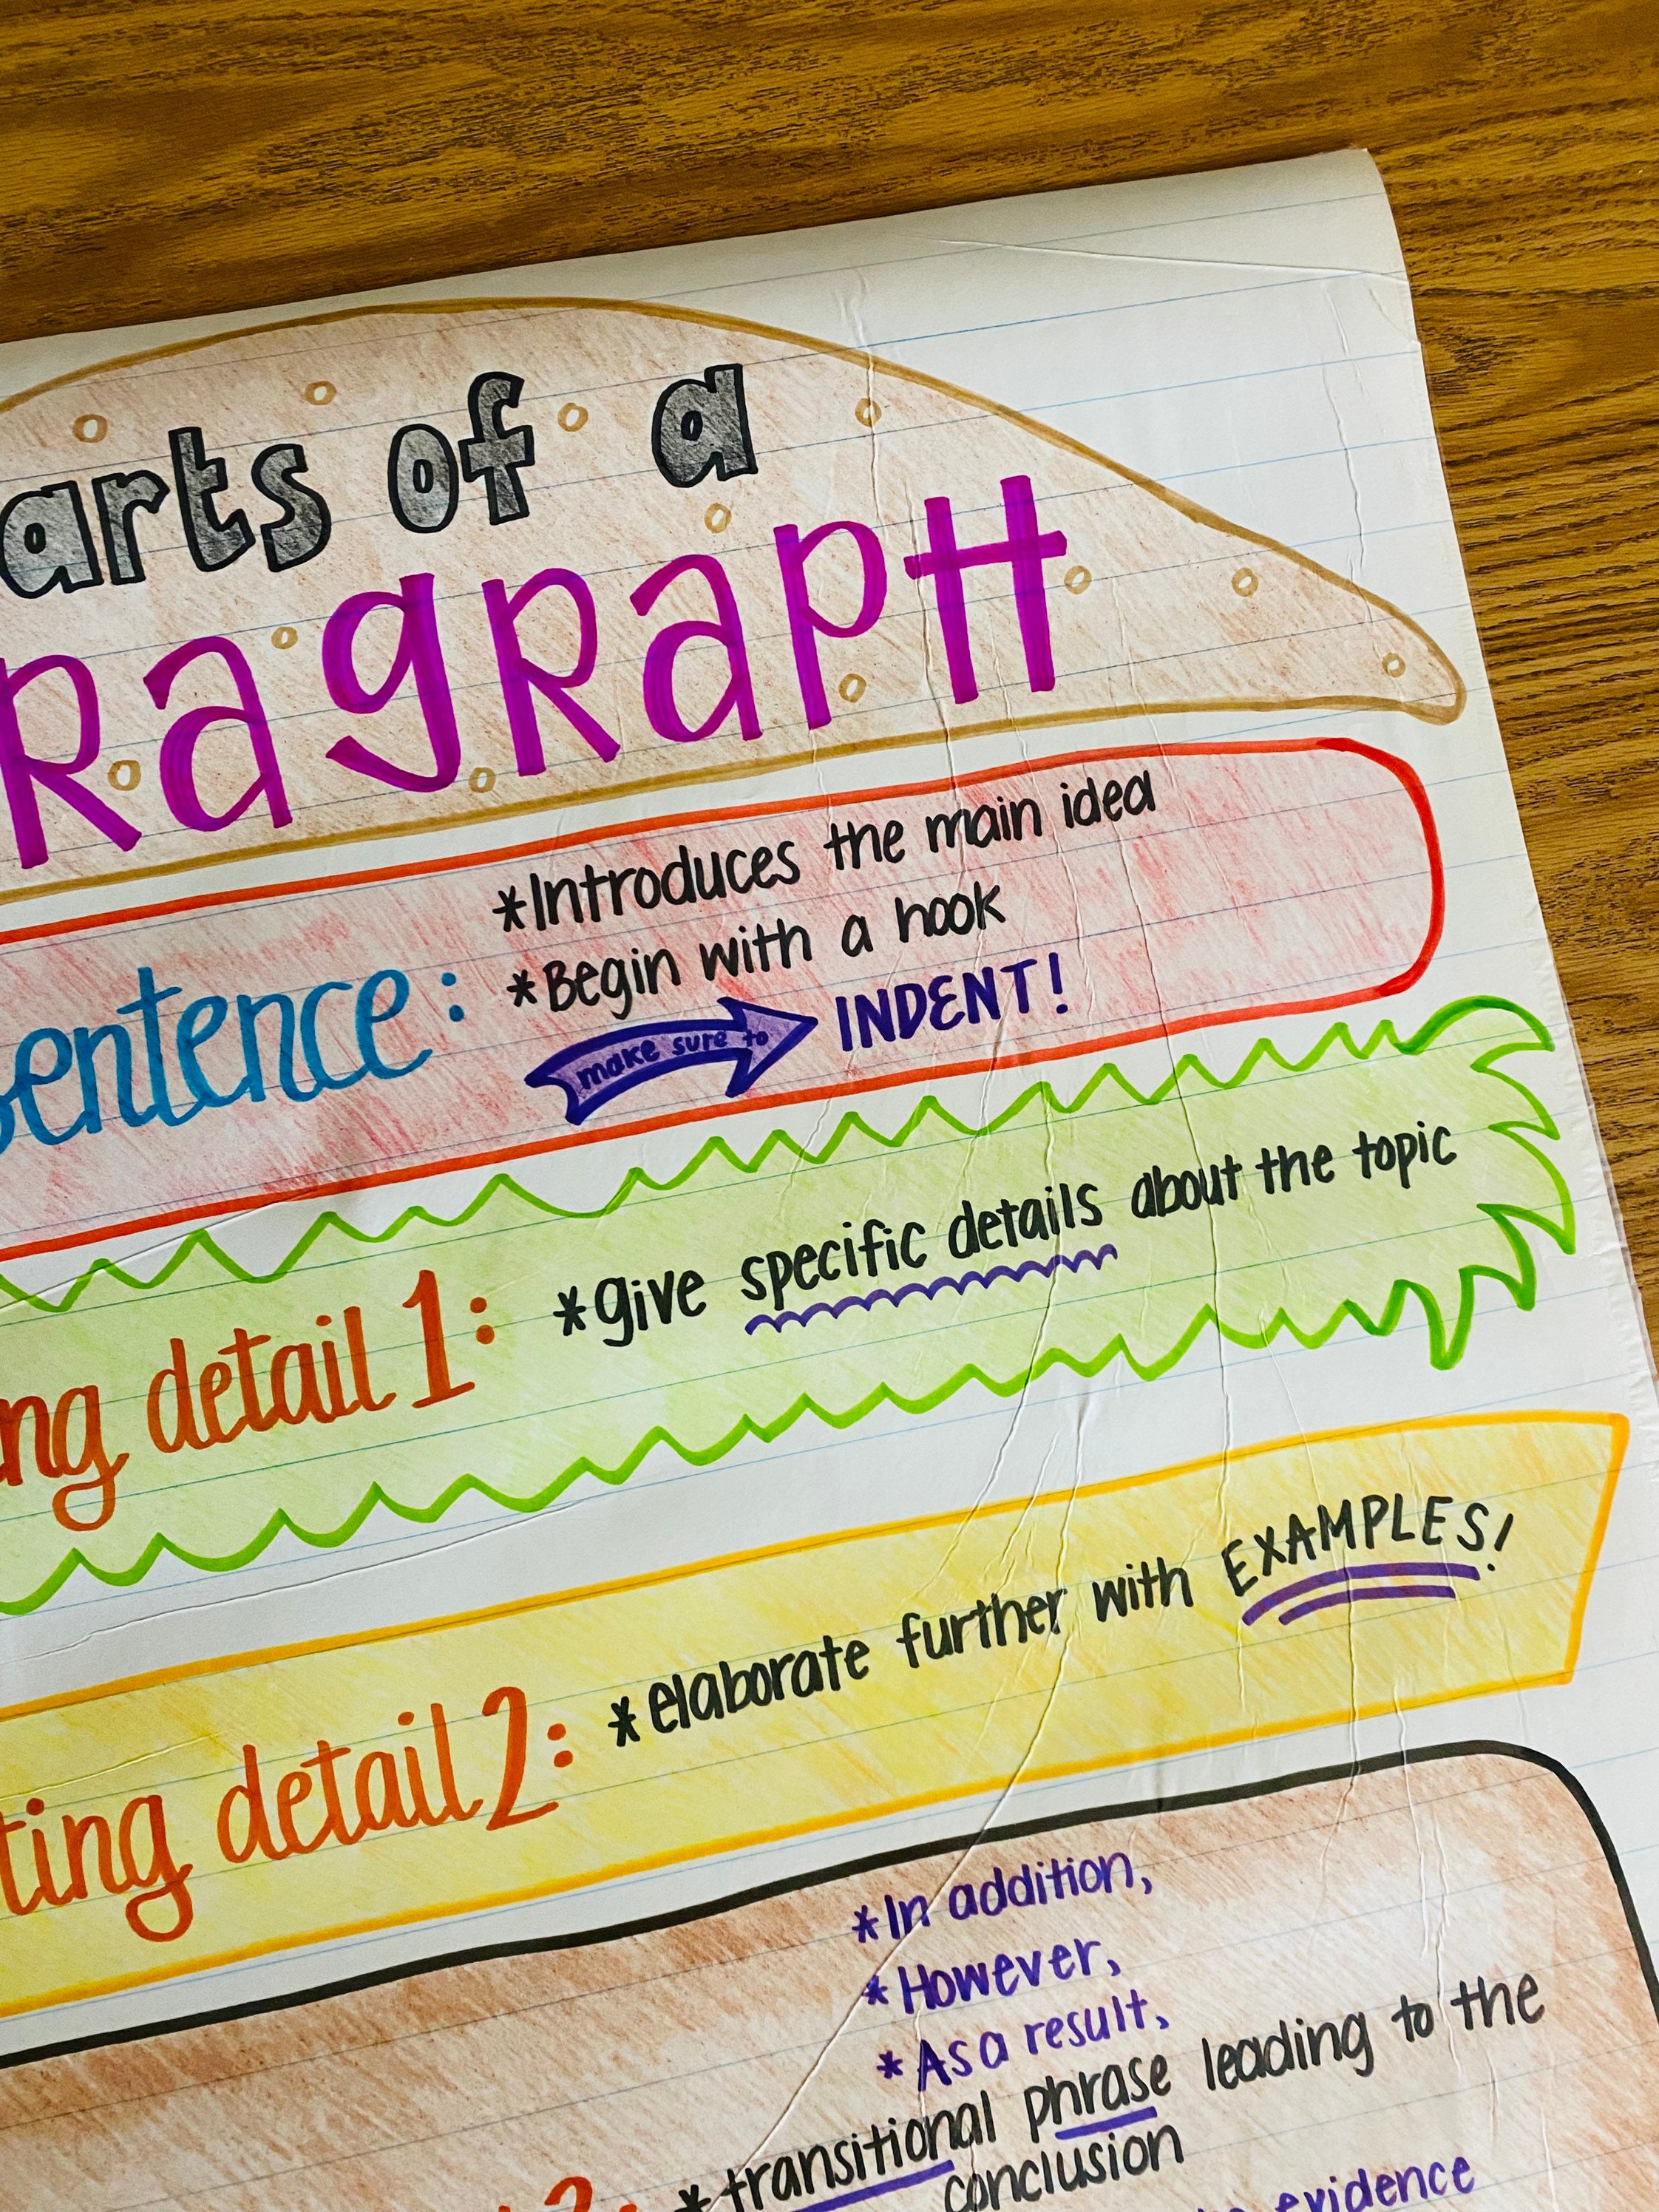 arts of a
RagRapH
sentence: *Introduces the main idea
*Begin with a hook
make sure to INDENT!
ng detail 1: *give specific details about the topic
ting detail 2: *elaborate further with EXAMPLES!
*In addition,
*However,
*As a result,
*transitional phrase leading to the
conclusion
evidence